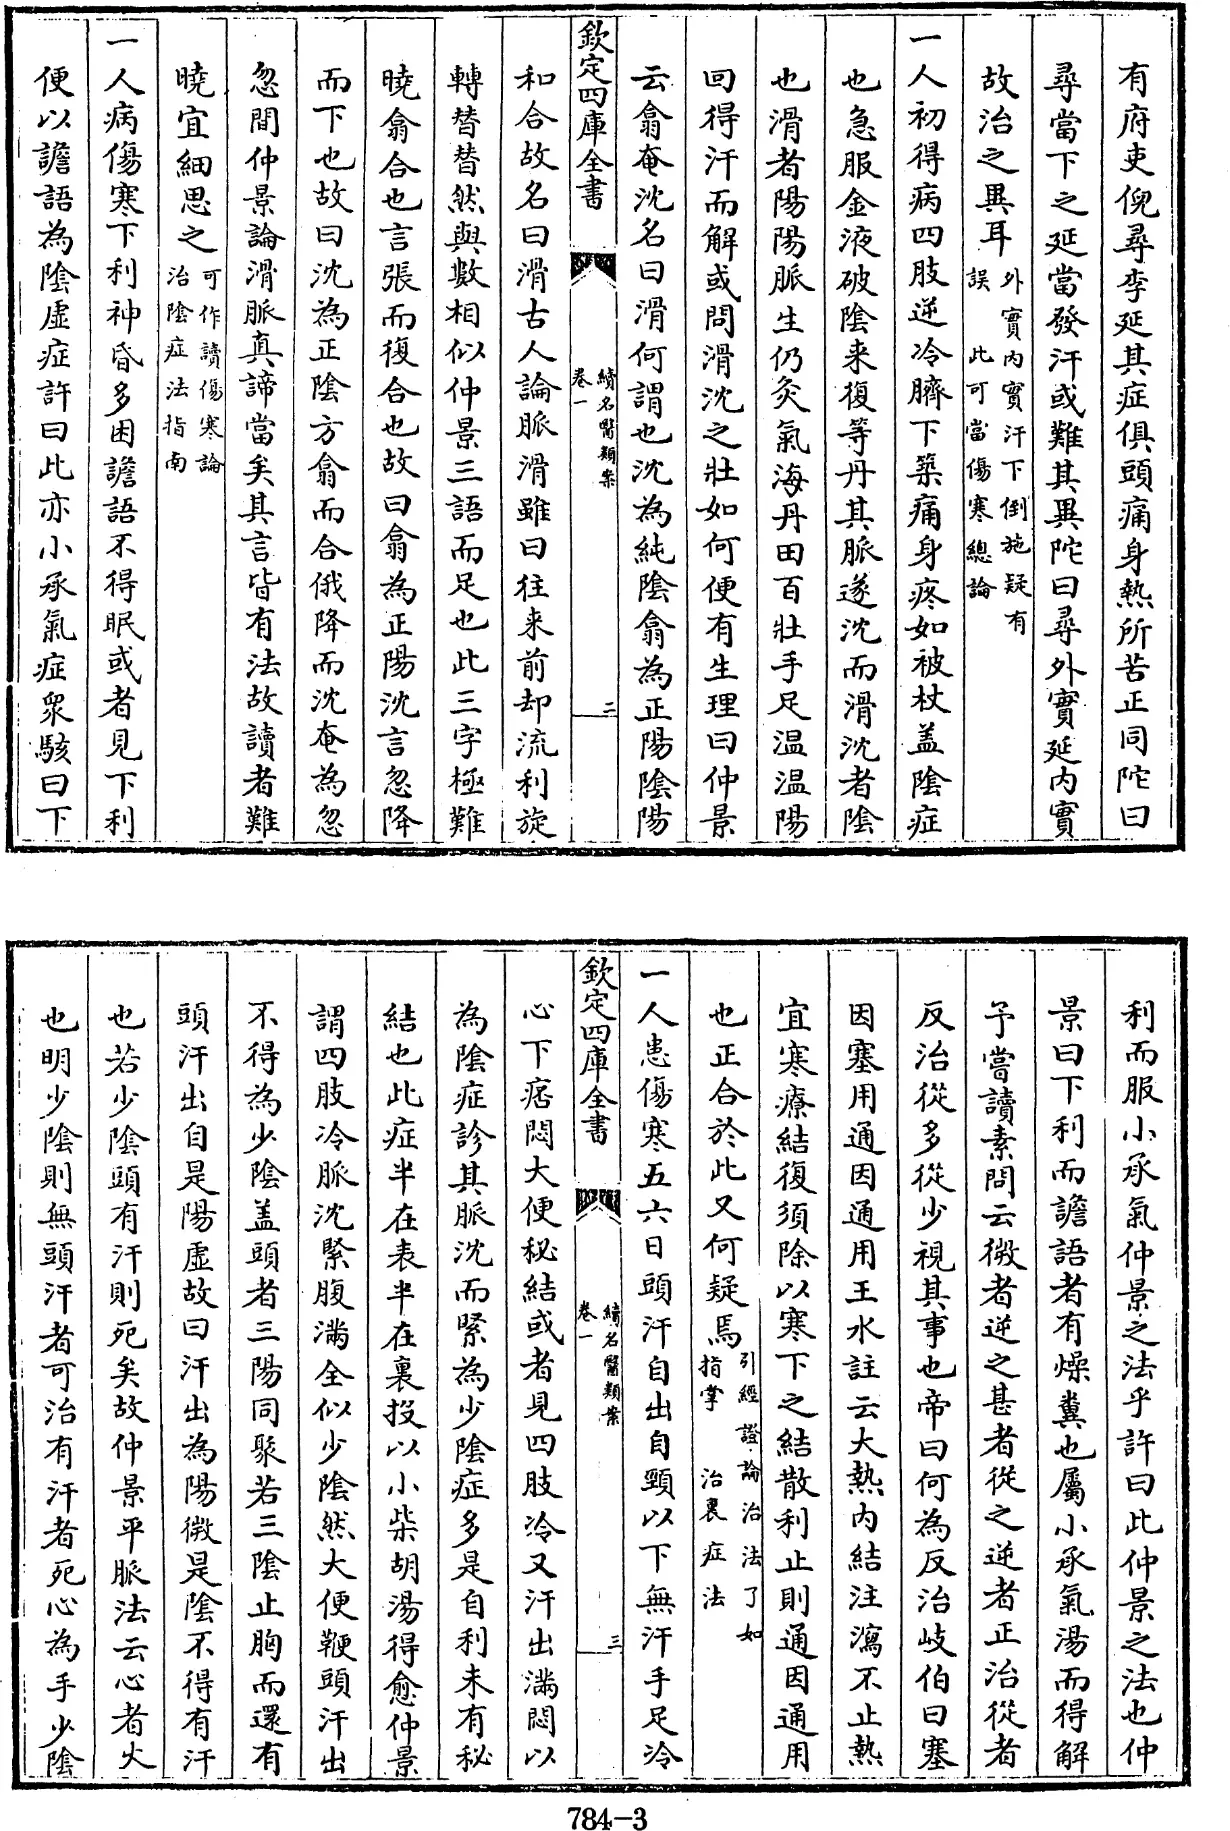 有府吏倪尋李延其症俱頭痛身熱所苦正同陀曰
尋當下之延當發汗或難其異陀曰尋外實延内實
故治之異耳外實内實汗下倒施疑有誤此可當傷寒總論
一人初得病四肢逆冷臍下築痛身疼如被杖盖陰症
也急服金液破陰来復等丹其脈遂沈而滑沈者陰
也滑者陽陽脈生仍灸氣海丹田百壯手足温温陽
回得汗而解或問滑沈之壯如何便有生理曰仲景
云翕奄沈名曰滑何謂也沈為純陰翕為正陽陰陽
欽定四庫全書
續名醫類案
卷一
二
和合故名曰滑古人論脈滑雖曰往来前却流利旋
轉替替然與數相似仲景三語而足也此三字極難
曉翕合也言張而復合也故曰翕為正陽沈言忽降
而下也故曰沈為正陰方翕而合俄降而沈奄為忽
忽間仲景論滑脈真諦當矣其言皆有法故讀者難
曉宜細思之可作讀傷寒論治陰症法指南
一人病傷寒下利神昏多困譫語不得眠或者見下利
便以譫語為陰虛症許曰此亦小承氣症衆駭曰下
利而服小承氣仲景之法乎許曰此仲景之法也仲
景曰下利而譫語者有燥糞也屬小承氣湯而得解
予嘗讀素問云微者逆之甚者從之逆者正治從者
反治從多從少視其事也帝曰何為反治岐伯曰塞
因塞用通因通用王水註云大熱内結注瀉不止熱
宜寒療結復須除以寒下之結散利止則通因通用
也正合於此又何疑焉引經證論治法了如指掌治裏症法
一人患傷寒五六日頭汗自出自頸以下無汗手足冷
欽定四庫全書
續名醫類案
卷一
三
心下痞悶大便秘結或者見四肢冷又汗出滿悶以
為陰症診其脈沈而緊為少陰症多是自利未有秘
結也此症半在表半在裏投以小柴胡湯得愈仲景
謂四肢冷脈沈緊腹滿全似少陰然大便鞕頭汗出
不得為少陰盖頭者三陽同聚若三陰止胸而還有
頭汗出自是陽虛故曰汗出為陽微是陰不得有汗
也若少陰頭有汗則死矣故仲景平脈法云心者火
也明少陰則無頭汗者可治有汗者死心為手少陰
784-3